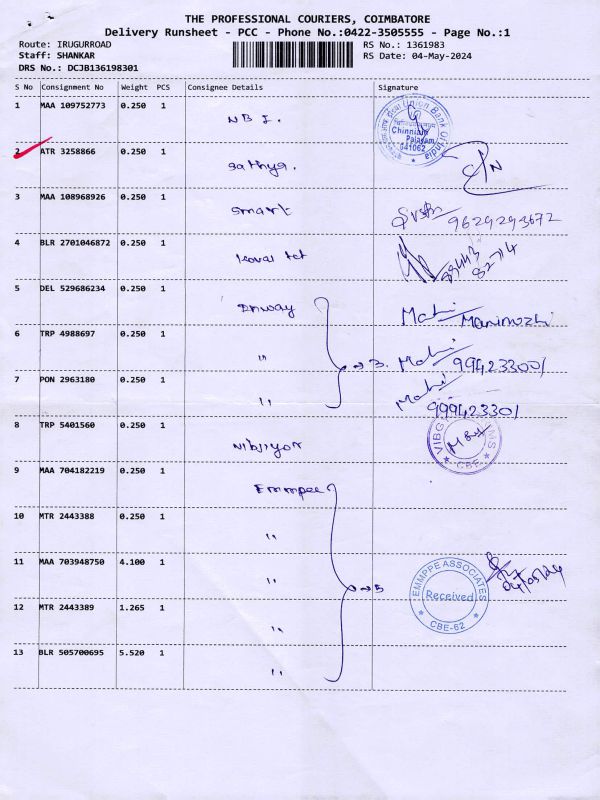 THE PROFESSIONAL COURIERS, COIMBATORE
Delivery Runsheet - PCC - Phone No.:0422-3505555 - Page No.:1
Route: IRUGURROAD RS No.: 1361983
Staff: SHANKAR RS Date: 04-May-2024
DRS No.: DCJB136198301
S No Consignment No Weight PCS Consignee Details Signature
1 MAA 109752773 0.250 1 Union Bank Of India
Chinniam
Palayam
641062
2 ATR 3258866 0.250 1 sathya.
3 MAA 108968926 0.250 1 smart 9629293672
4 BLR 2701046872 0.250 1
5 DEL 529686234 0.250 1 Mahi
6 TRP 4988697 0.250 1 " 3. Mahi
994233001
7 PON 2963180 0.250 1 " Mahi
999423301
8 TRP 5401560 0.250 1 CBE
9 MAA 704182219 0.250 1 Emmpee
10 MTR 2443388 0.250 1 "
11 MAA 703948750 4.100 1 " 5 EMMPPE ASSOCIATES
Received
CBE-62
04/05/24
12 MTR 2443389 1.265 1 "
13 BLR 505700695 5.520 1 "